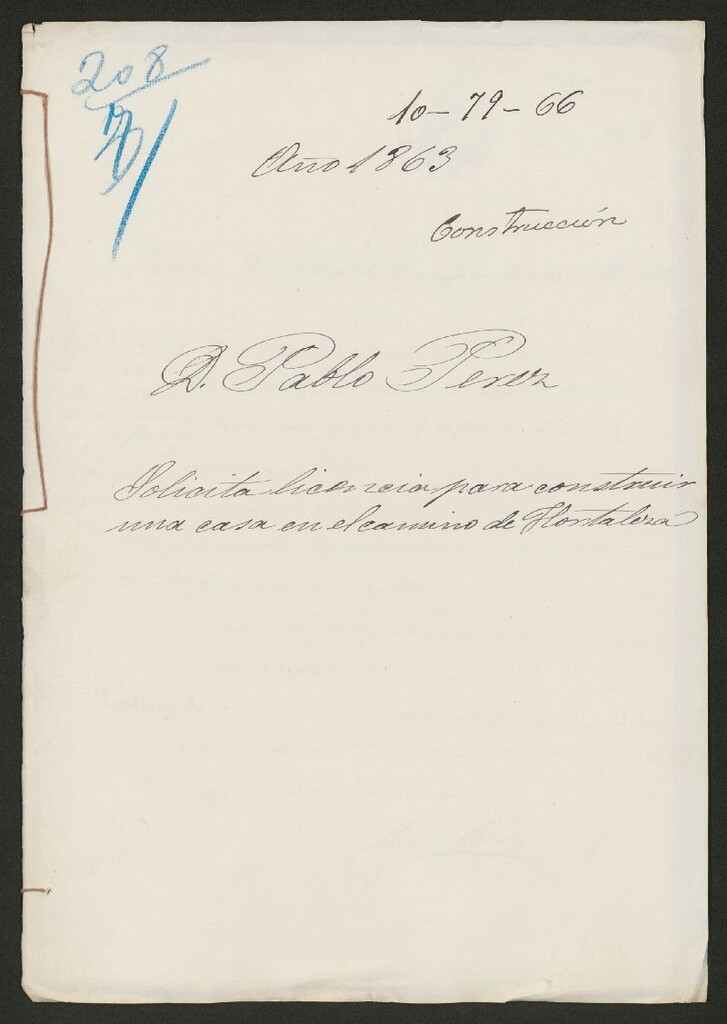 208
10-79-66
Año 1863
Construcción
D. Pablo Perez
Solicita licencia para construir
una casa en el camino de Hortaleza